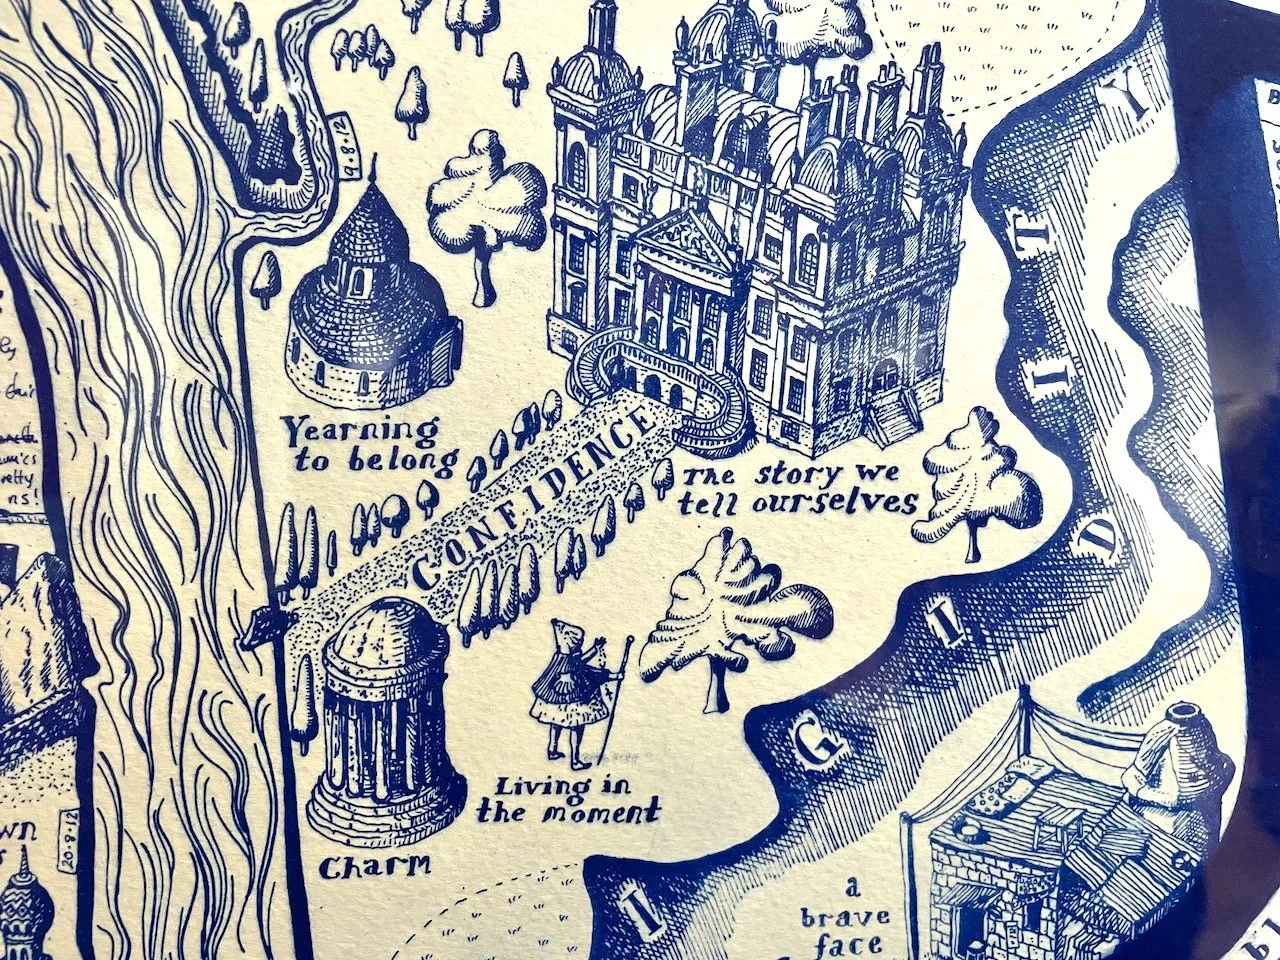 Yearning
to belong
CONFIDENCE
The story we
tell ourselves
Living in
the moment
Charm
20·8·12
a
brave
face
I
G
I
D
I
T
Y